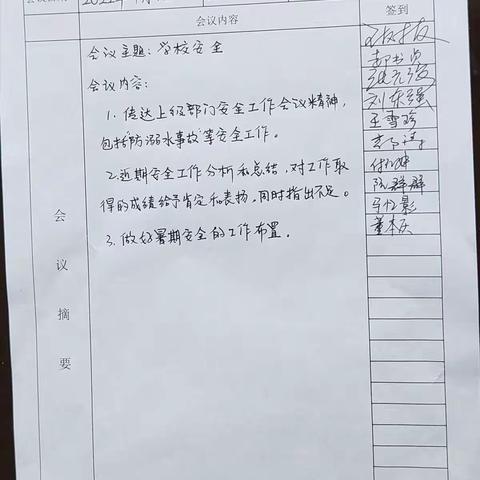 会议内容
签到
会议主题:学校安全
会议内容:
1. 传达上级部门安全工作会议精神,
包括防溺水事故等安全工作。
2.近期安全工作分析和总结,对工作取
得的成绩给予肯定和表扬,同时指出不足。
3.做好暑期安全的工作布置。
会议摘要
刘东强
王雪玲
陈群群
董本庆